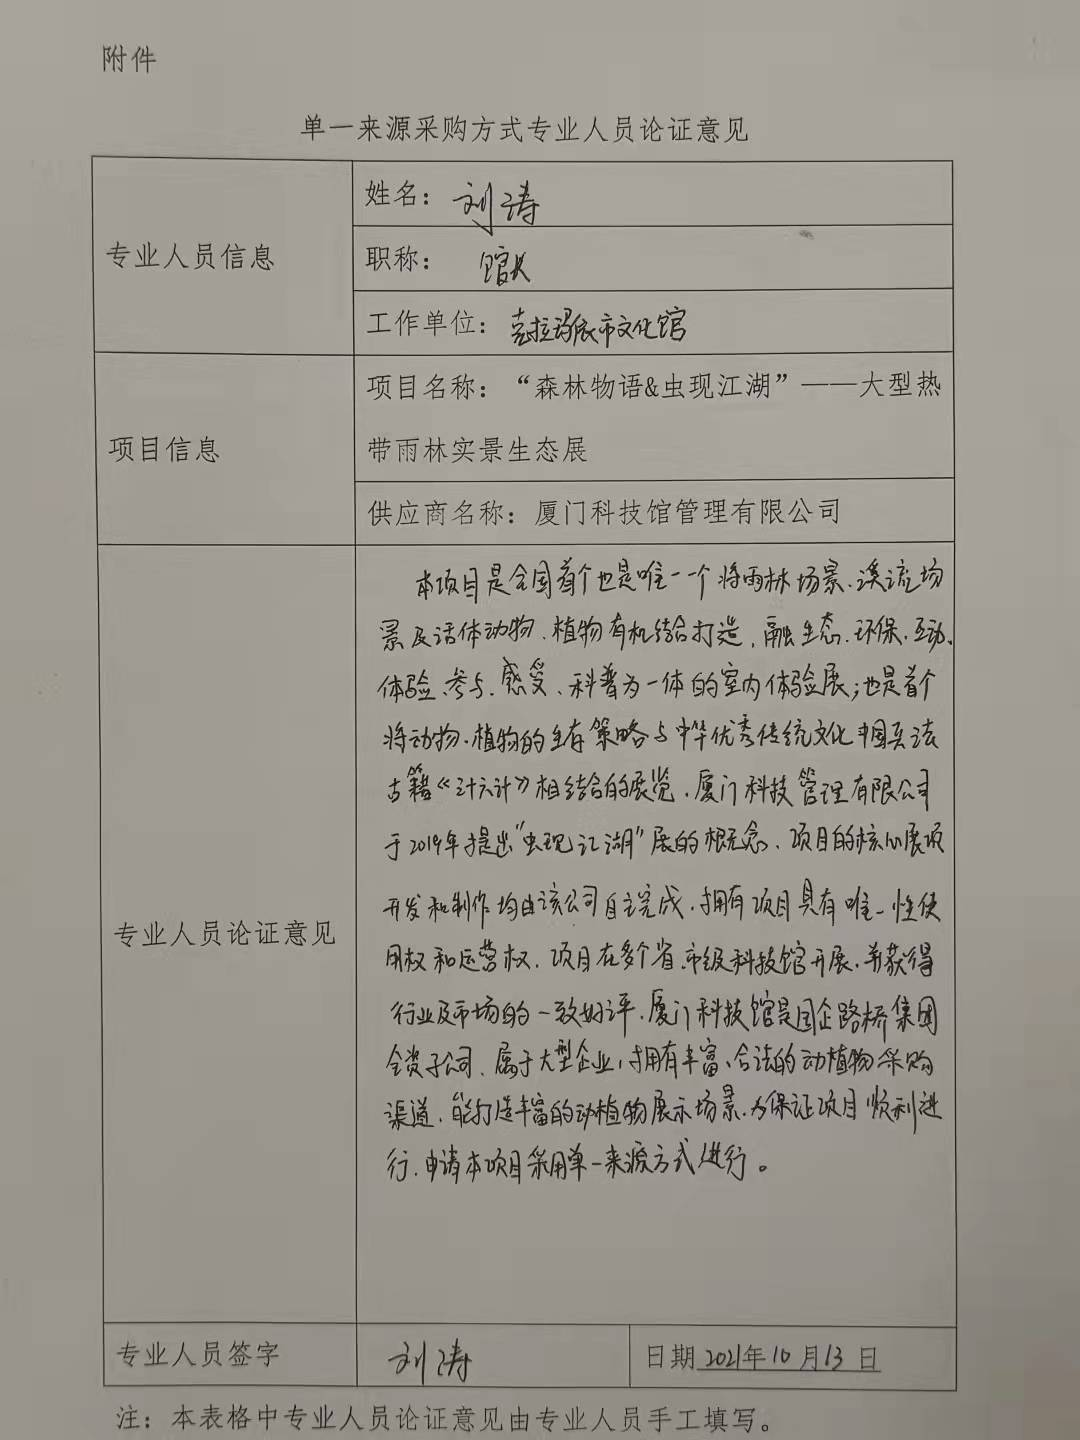 附件
单一来源采购方式专业人员论证意见
专业人员信息
姓名：刘涛
职称：馆长
工作单位：克拉玛依市文化馆
项目信息
项目名称：“森林物语&虫现江湖”——大型热
带雨林实景生态展
供应商名称：厦门科技馆管理有限公司
专业人员论证意见
本项目是全国首个也是唯一一个将雨林场景、溪流场
景及活体动物、植物有机结合打造，融生态、环保、互动、
体验、参与、感受、科普为一体的室内体验展；也是首个
将动物、植物的生存策略与中华优秀传统文化中国兵法
古籍《三十六计》相结合的展览，厦门科技管理有限公司
于2019年提出“虫现江湖”展的概念，项目的核心展项
开发和制作均由该公司自主完成，拥有项目具有唯一性使
用权和运营权，项目在多个省、市级科技馆开展，并获得
行业及市场的一致好评，厦门科技馆是国企路桥集团
全资子公司，属于大型企业，拥有丰富、合法的动植物采购
渠道，能打造丰富的动植物展示场景，为保证项目顺利进
行，申请本项目采用单一来源方式进行。
专业人员签字
刘涛
日期 2021年10月13日
注：本表格中专业人员论证意见由专业人员手工填写。